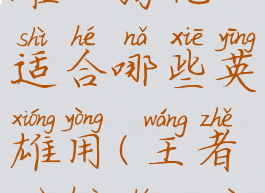 shì hé nǎ xiē yīng
适合哪些英
xióng yòng wáng zhě
雄用(王者